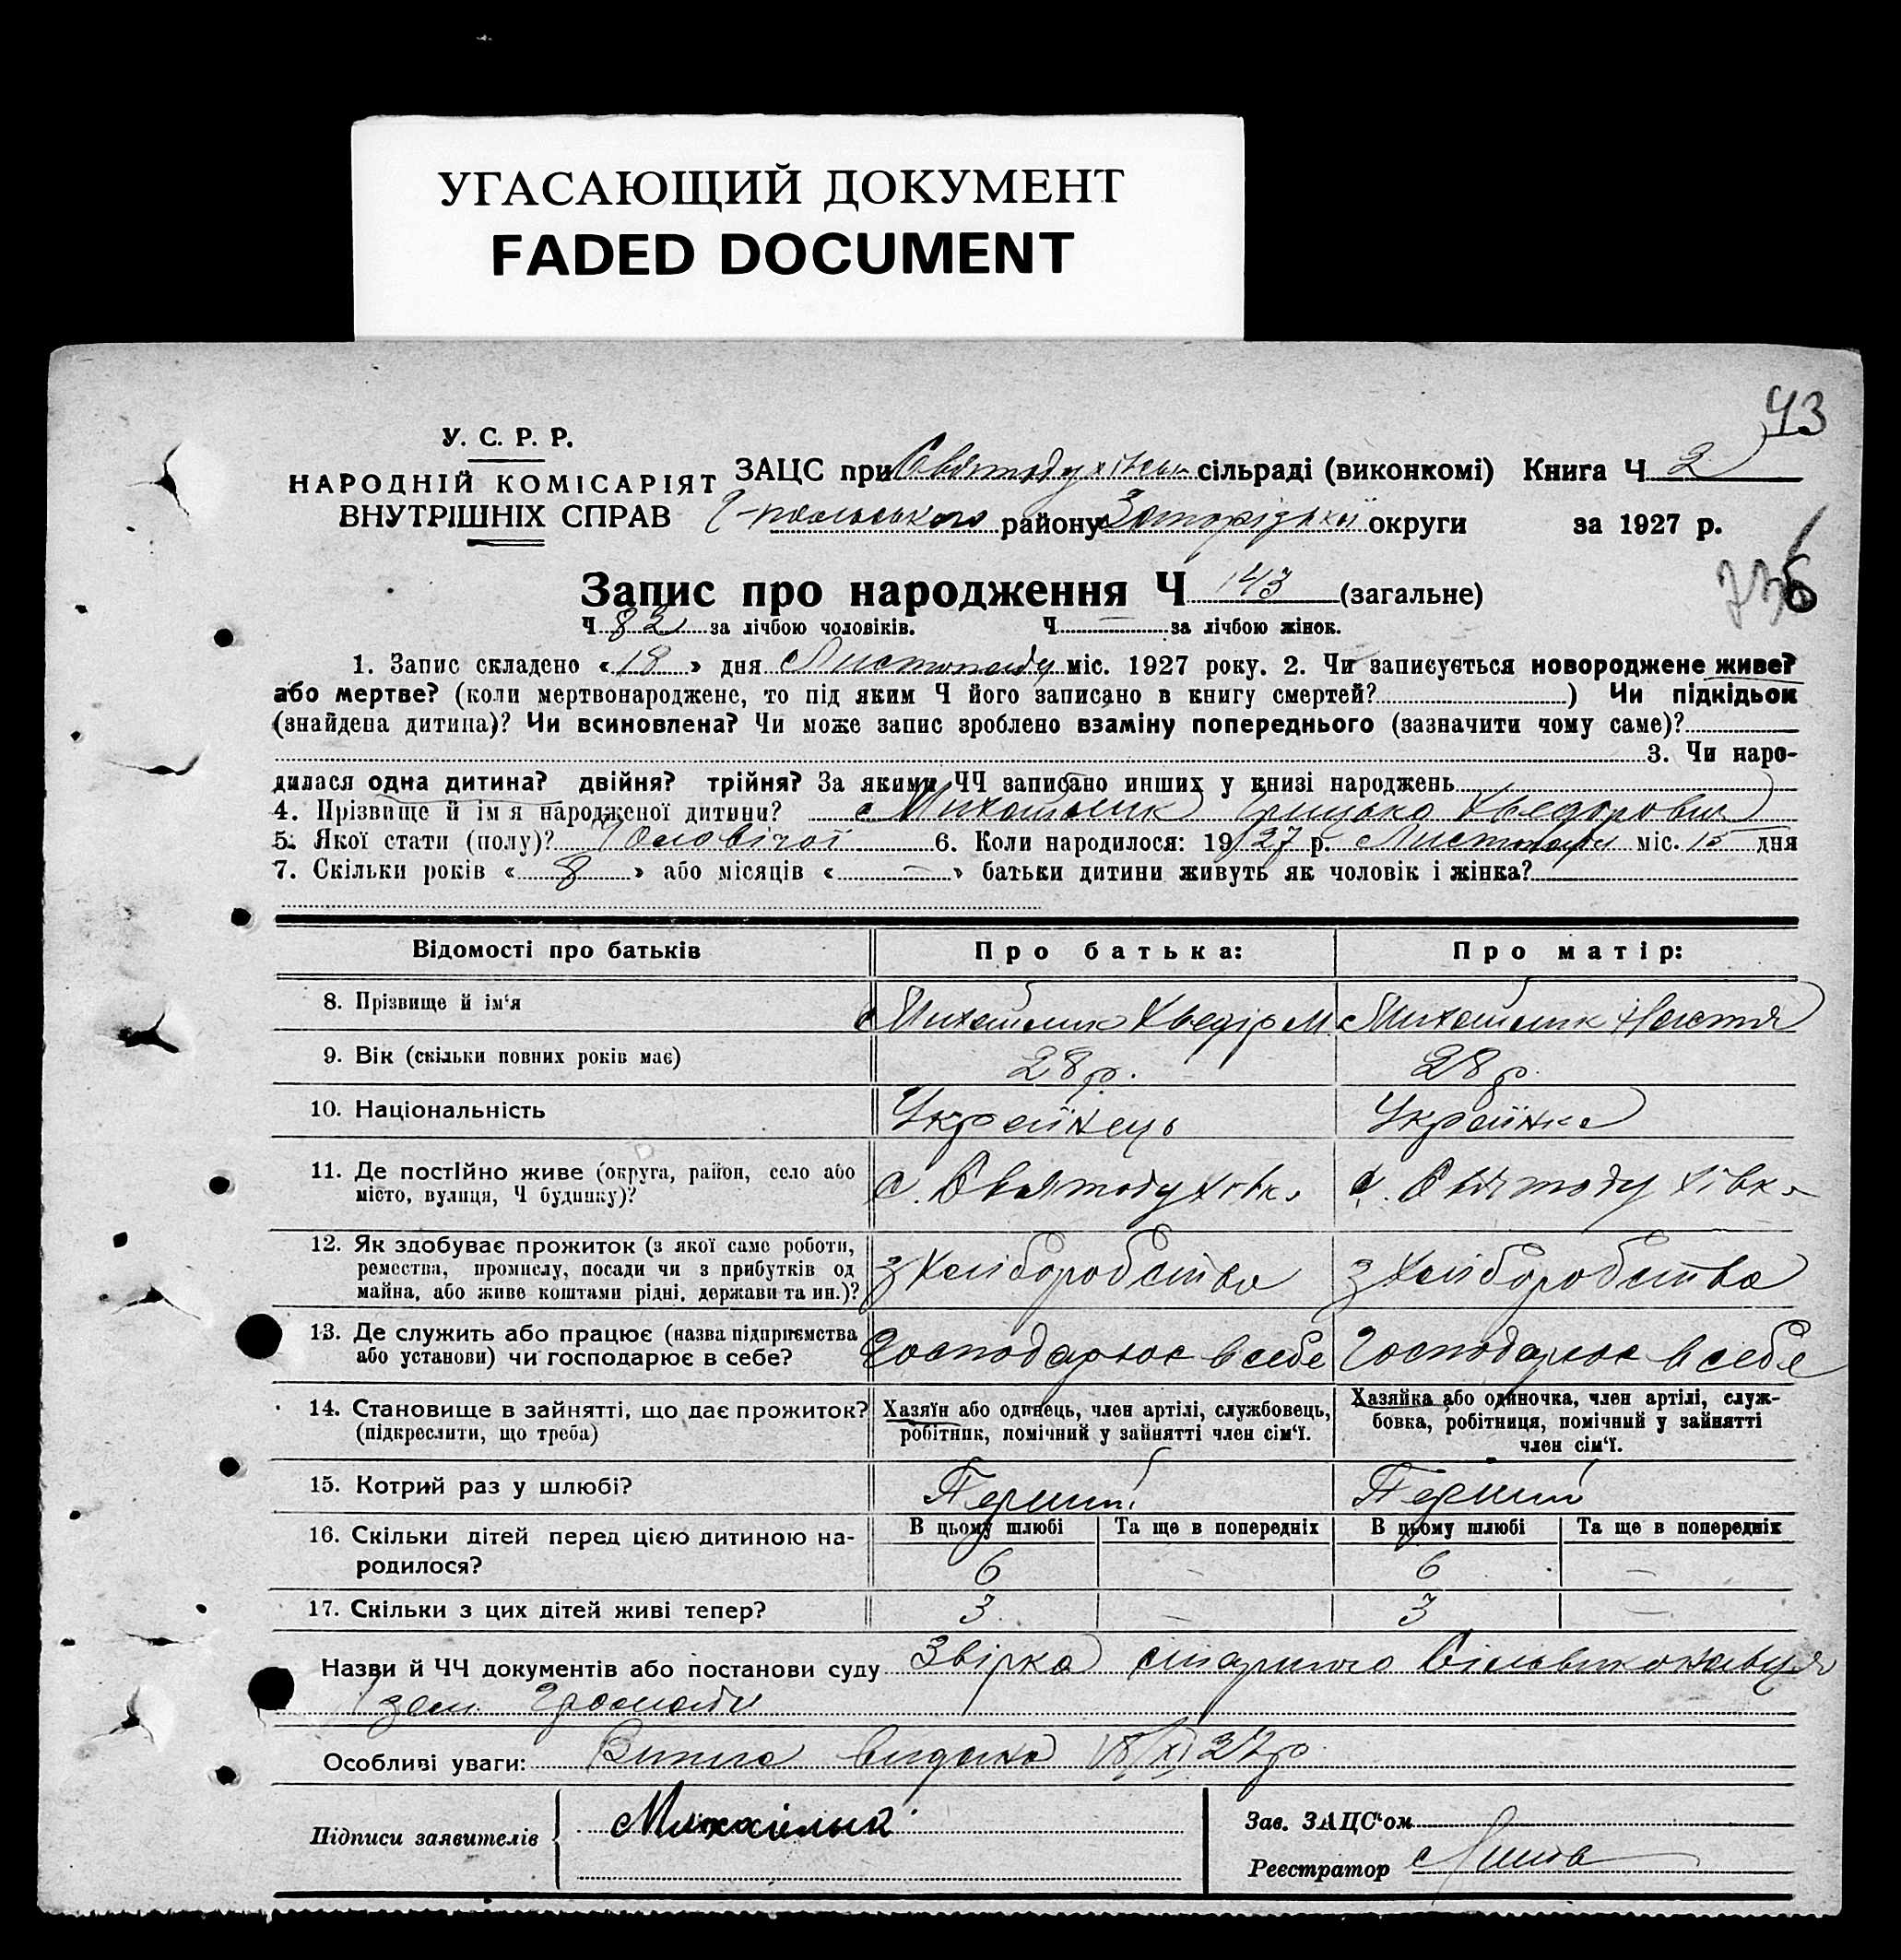 УГАСАЮЩИЙ ДОКУМЕНТ
FADED DOCUMENT
43
У. С. Р. Р.
НАРОДНІЙ КОМІСАРІЯТ
ВНУТРІШНІХ СПРАВ
ЗАЦС при Святодухівськ сільраді (виконкомі) Книга Ч 2
району Запорізької округи за 1927 р.
6
Запис про народження Ч 143 (загальне)
Ч 82 за лічбою чоловіків. Ч — за лічбою жінок.
1. Запис складено « 18 » дня Листопаду міс. 1927 року. 2. Чи записується новороджене живе?
або мертве? (коли мертвонароджене, то під яким Ч його записано в книгу смертей? ) Чи підкідьок
(знайдена дитина)? Чи всиновлена? Чи може запис зроблено взаміну попереднього (зазначити чому саме)?
3. Чи наро-
дилася одна дитина? двійня? трійня? За якими ЧЧ записано инших у книзі народжень
4. Прізвище й ім'я народженої дитини? Михайлик Грицько Хведорович
5. Якої статі (полу)? Чоловічої 6. Коли народилося: 1927 р. Листопаду міс. 15 дня
7. Скільки років « 8 » або місяців « — » батьки дитини живуть як чоловік і жінка?
Відомості про батьків Про батька: Про матір:
8. Прізвище й ім'я Михайлик Хведір М. Михайлик Настя
9. Вік (скільки повних років має) 28 р. 28 р.
10. Національність Українець Українка
11. Де постійно живе (округа, район, село або с. Святодухівка с. Святодухівка
місто, вулиця, Ч будинку)?
12. Як здобуває прожиток (з якої саме роботи, з Хліборобства з Хліборобства
ремества, промислу, посади чи з прибутків од
майна, або живе коштами рідні, держави та ин.)?
13. Де служить або працює (назва підприємства Господарює в себе Господарює в себе
або установи) чи господарює в себе?
14. Становище в зайнятті, що дає прожиток? Хазяїн або одинець, член артілі, службовець, Хазяйка або одиночка, член артілі, служ-
(підкреслити, що треба) робітник, помічний у зайнятті член сім'ї. бовка, робітниця, помічний у зайнятті
член сім'ї.
15. Котрий раз у шлюбі? Перший Перший
16. Скільки дітей перед цією дитиною на- В цьому шлюбі Та ще в попередніх В цьому шлюбі Та ще в попередніх
родилося? 6 — 6 —
17. Скільки з цих дітей живі тепер? 3 — 3 —
Назви й ЧЧ документів або постанови суду Звірка старшого Сільвиконавця
зем. Громади
Особливі уваги: Випис видана 18/XI 27 р.
Підписи заявителів Михайлык
Зав. ЗАЦС'ом
Реєстратор